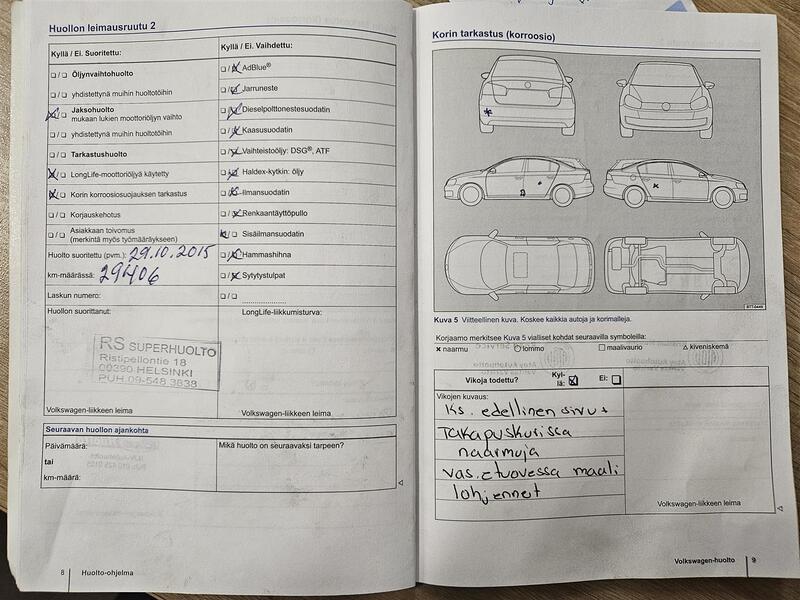 Huollon leimausruutu 2
Kyllä / Ei. Suoritettu:
Öljynvaihtohuolto
yhdistettynä muihin huoltotöihin
Jaksohuolto
mukaan lukien moottoriöljyn vaihto
yhdistettynä muihin huoltotöihin
Tarkastushuolto
LongLife-moottoriöljyä käytetty
Korin korroosiosuojauksen tarkastus
Korjauskehotus
Asiakkaan toivomus
(merkintä myös työmääräykseen)
Huolto suoritettu (pvm.): 29.10.2015
km-määrässä: 29406
Laskun numero:
Huollon suorittanut:
RS SUPERHUOLTO
Ristipellontie 18
00390 HELSINKI
PUH 09-548 3838
Volkswagen-liikkeen leima
Kyllä / Ei. Vaihdettu:
AdBlue®
Jarruneste
Dieselpolttonestesuodatin
Kaasusuodatin
Vaihteistoöljy: DSG®, ATF
Haldex-kytkin: öljy
Ilmansuodatin
Renkaantäyttöpullo
Sisäilmansuodatin
Hammashihna
Sytytystulpat
LongLife-liikkumisturva:
Volkswagen-liikkeen leima
Seuraavan huollon ajankohta
Päivämäärä:
tai
km-määrä:
Mikä huolto on seuraavaksi tarpeen?
8 Huolto-ohjelma
Korin tarkastus (korroosio)
Kuva 5 Viitteellinen kuva. Koskee kaikkia autoja ja korimalleja.
Korjaamo merkitsee Kuva 5 vialliset kohdat seuraavilla symboleilla:
x naarmu
lommo
maalivaurio
kiveniskemä
Vikoja todettu?
Kyl-
lä:
Ei:
Vikojen kuvaus:
Ks. edellinen sivu +
Takapuskurissa
naarmuja
vas. etuovessa maali
lohjennut
Volkswagen-liikkeen leima
Volkswagen-huolto 9